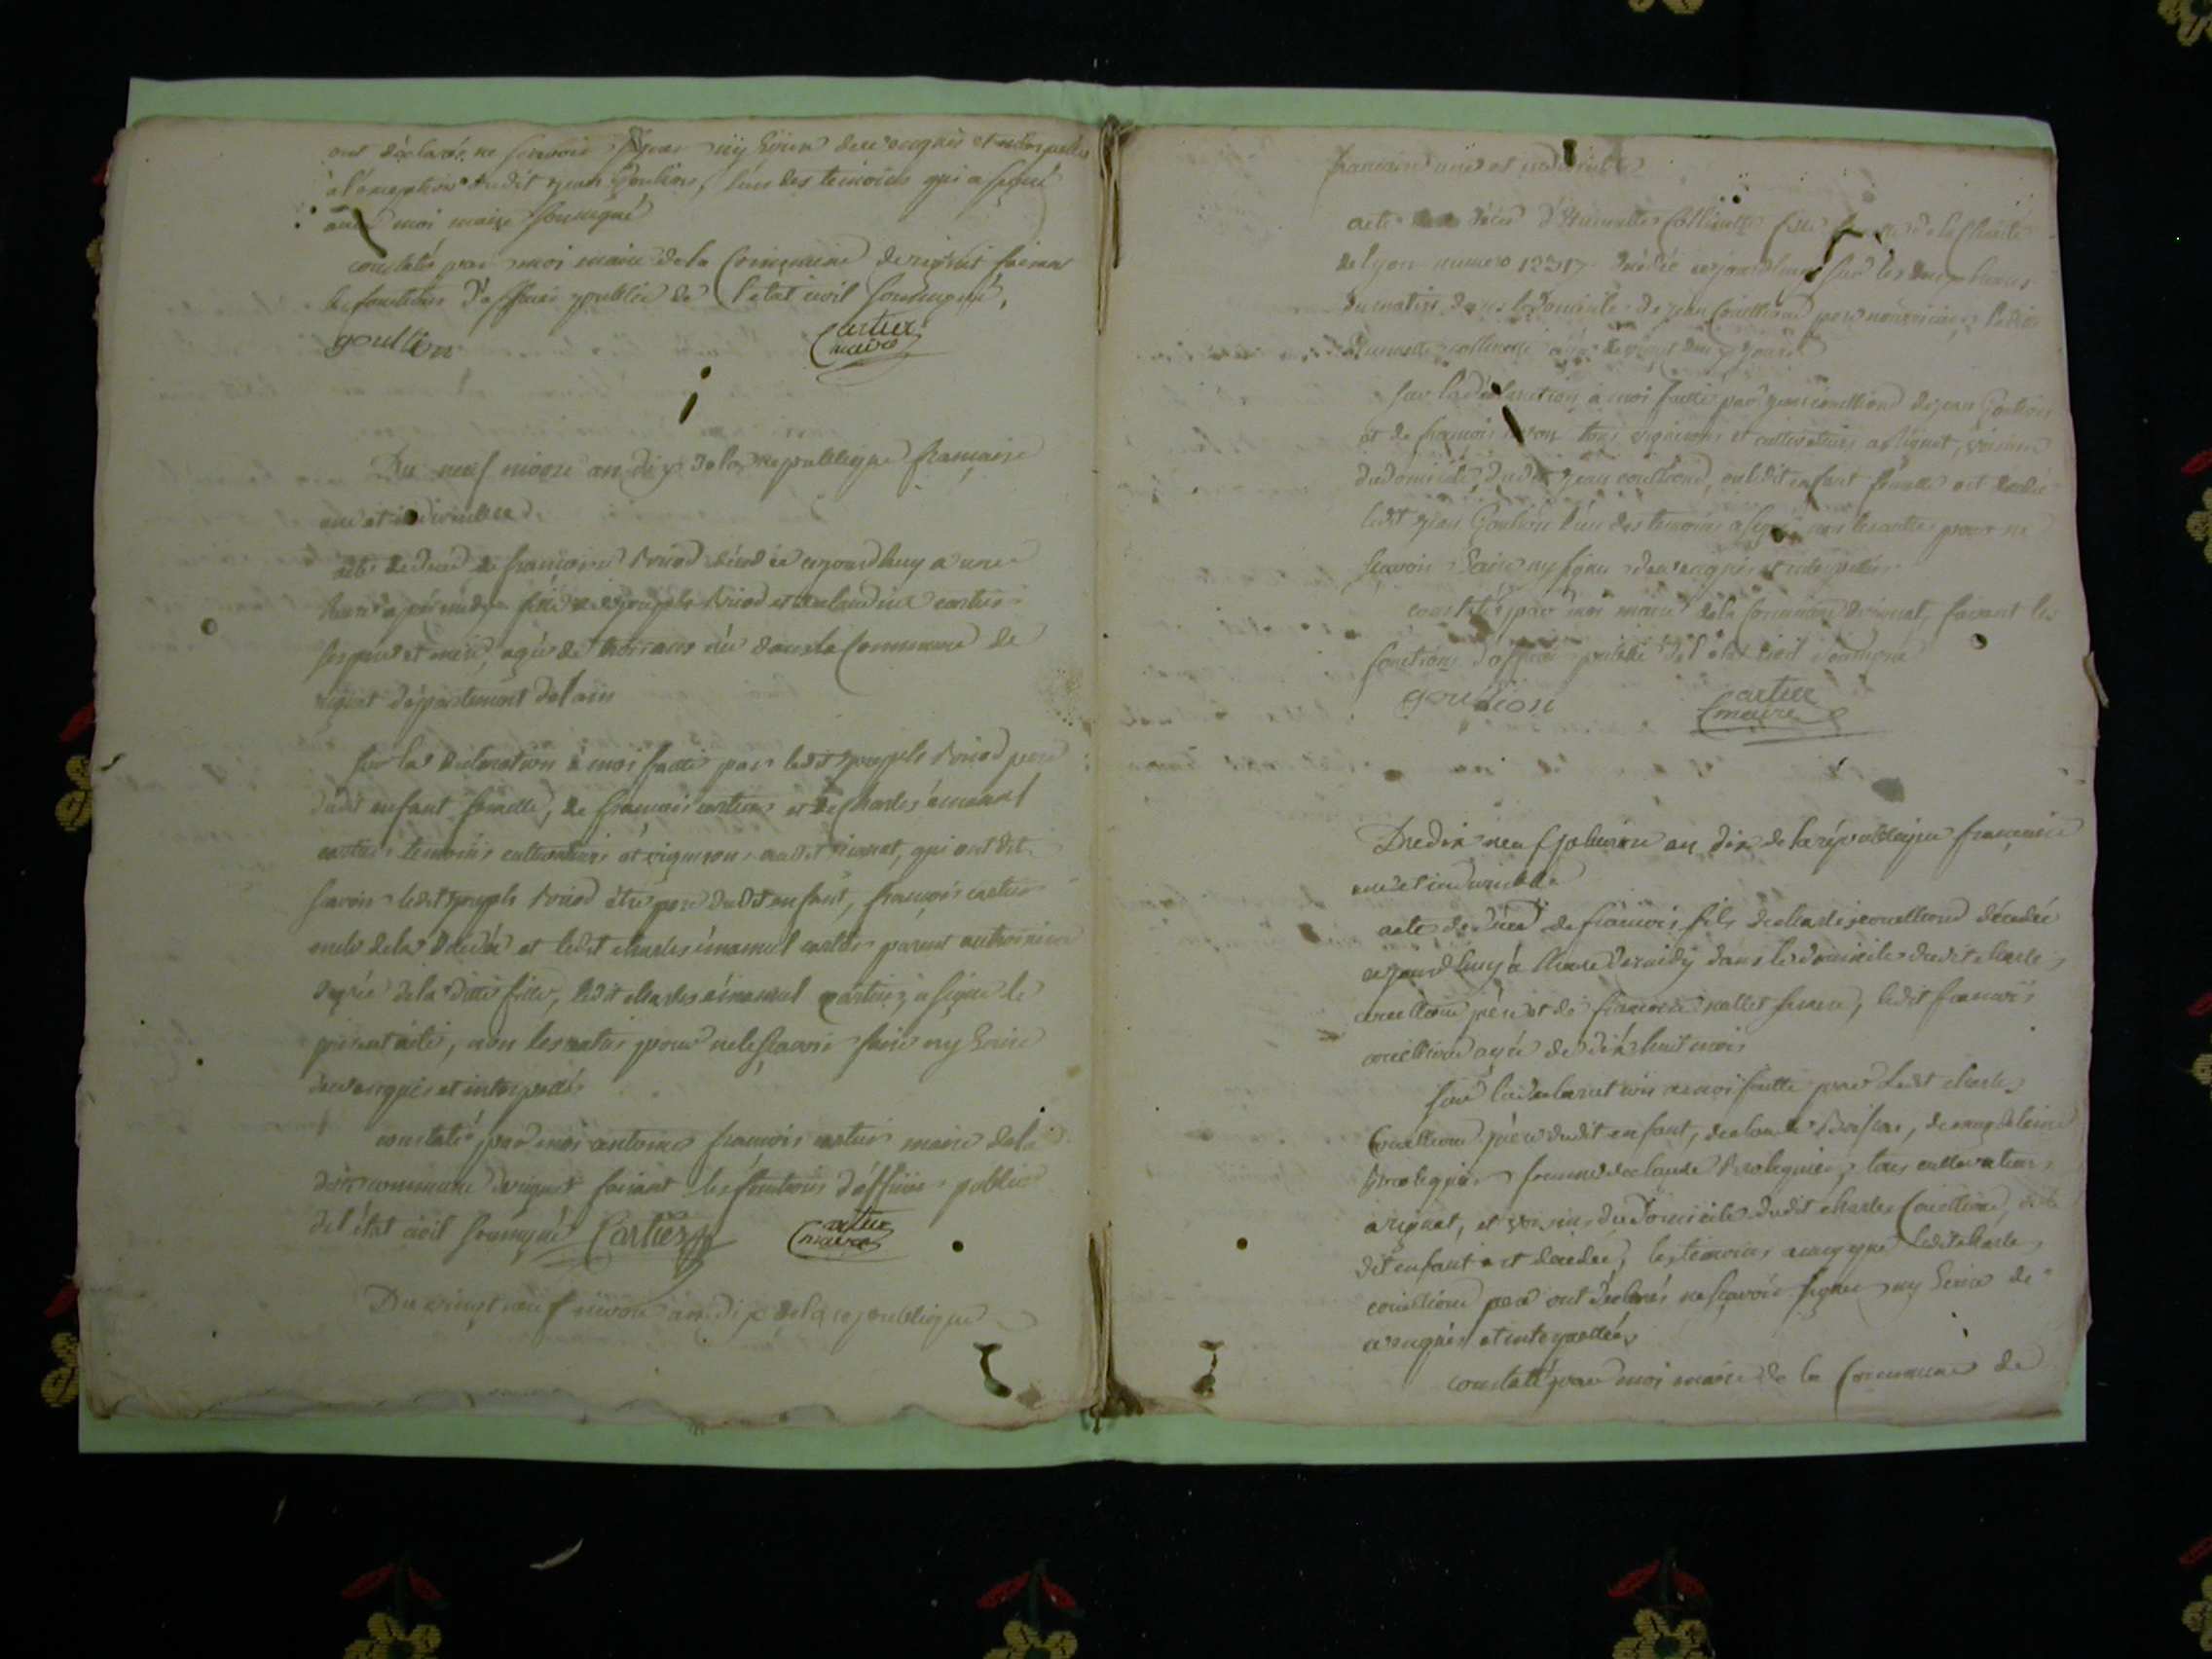 ont déclarés ne scavoir signer ny écrire de ce enquis et interpellés
à l'exception dudit jean Goulion, l'un des témoins qui a signé
avec moi maire soussigné
constaté par moi maire de la Commune de rignat faisant
les fonctions d'officier public de l'etat civil soussigné,
goullion Cartier maire
Du neuf nivose an dix de la republique française
une et indivisible
acte de décès de françoise décédée cejourdhuy a une
heure après midy fille de joseph et de claudine cartier
ses père et mère, agée de trois ans née dans la Commune de
rignat département de l'ain
sur la déclaration à moi faitte par ledit joseph père
dudit enfant femelle, de françois cartier et de Charles émanuel
cartier témoins cultivateurs et vignerons audit rignat, qui ont dit
scavoir ledit joseph être père dudit enfant, françois cartier
oncle de la décédée et ledit charles émanuel cartier parent au troisième
degrée de la ditte fille, ledit charles émanuel cartier, a signé le
présent acte, non les autres pour ne le scavoir faire ny écrire
de ce enquis et interpellés
constaté par moi antoine françois cartier maire de la
ditte commune de rignat faisant les fonctions d'officier public
de l'état civil soussigné Cartier Cartier maire
Du vingt neuf nivose an dix de la republique
francaise une et indivisible
acte de décès d'Etiennette fille de la Charité
de lyon numero 12317 décédée cejourdhuy sur les heures
du matin dans le domicile de jean Couilliond père nourricier, ladite
Etiennette agée de vingt deux jours
sur la déclaration à moi faitte par jean couilliond de jean Goulion
et de françois tous vignerons et cultivateurs a rignat, voisins
du domicile dudit jean couilliond, ou ledit enfant femelle est décédé
ledit jean Goulion l'un des témoins a signé non les autres pour ne
scavoir écrire ny signer de ce enquis et interpellés
constaté par moi maire de la Commune de rignat, faisant les
fonctions d'officier public de l'état civil soussigné
goullion Cartier maire
Du dix neuf pluviose an dix de la république française
une et indivisible
acte de décès de françois fils de charles couilliond décédé
cejourdhuy à l'heure de midy dans le domicile dudit charles
couilliond père et de françoise sa mère, ledit françois
couilliond agé de dix huit mois
sur la déclaration à moi faitte par ledit charles
Couilliond père dudit enfant, de claude, de magdelaine
femme de claude tous cultivateurs
a rignat, et voisins du domicile dudit charles Couilliond, ou le
dit enfant est décédé, les témoins ainsy que ledit charles
couilliond père ont déclarés ne scavoir signer ny écrire de
ce enquis et interpellés
constaté par moi maire de la Commune de